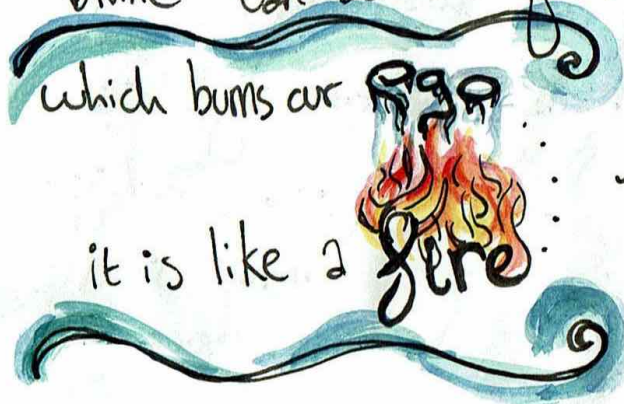 can
which burns our ego
it is like a fire